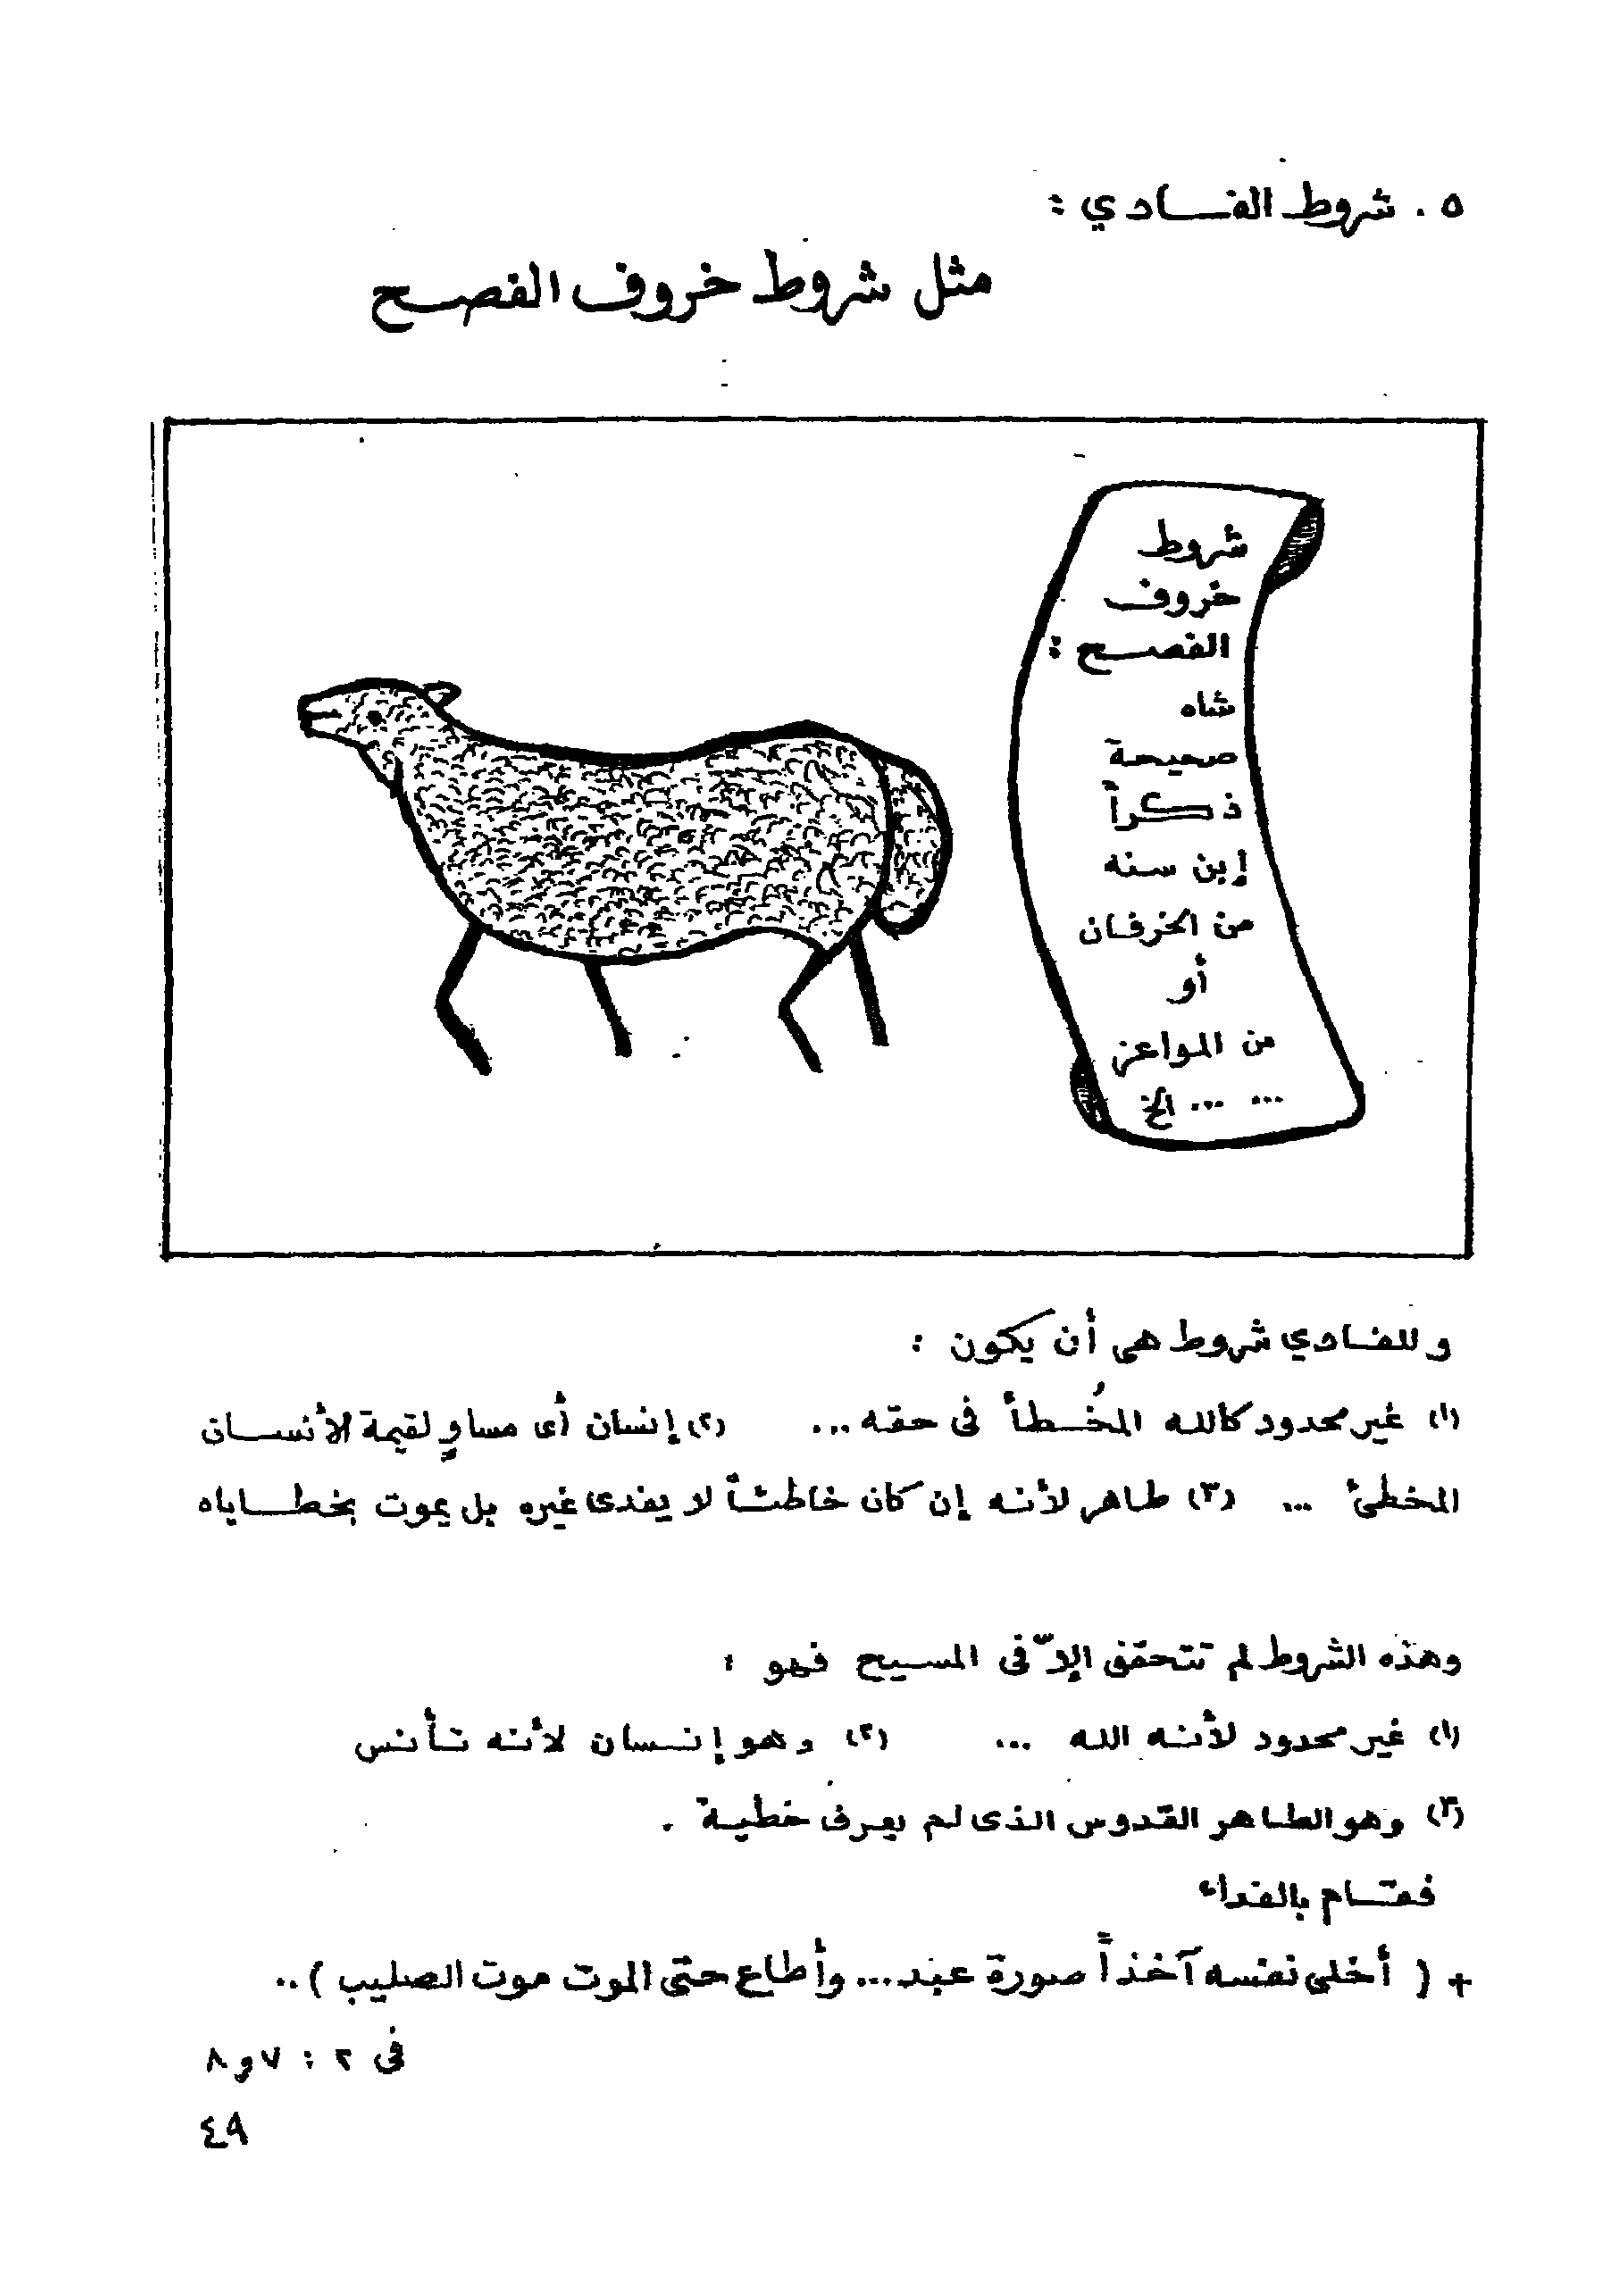 ٥ . شروط الفادي :
مثل شروط خروف الفصح
شروط
خروف
الفصح :
شاه
صحيحة
ذكراً
إبن سنه
من الخرفان
أو
من المواعز
... ... الخ
وللفادي شروط هى أن يكون :
(١) غير محدود كالله المُخطأ فى حقه ... (٢) إنسان أى مساوٍ لقيمة الأنسان
المخطئ ... (٣) طاهر لأنه إن كان خاطئاً لا يفدى غيره بل يموت بخطاياه
وهذه الشروط لم تتحقق إلاّ فى المسيح فهو :
(١) غير محدود لأنه الله ... (٢) وهو إنسان لأنه تأنس
(٣) وهو الطاهر القدوس الذى لم يعرف خطية .
فقام بالفداء
+ ( أخلى نفسه آخذاً صورة عبد ... وأطاع حتى الموت موت الصليب ) ..
فى ٢ : ٧ و ٨
٤٩